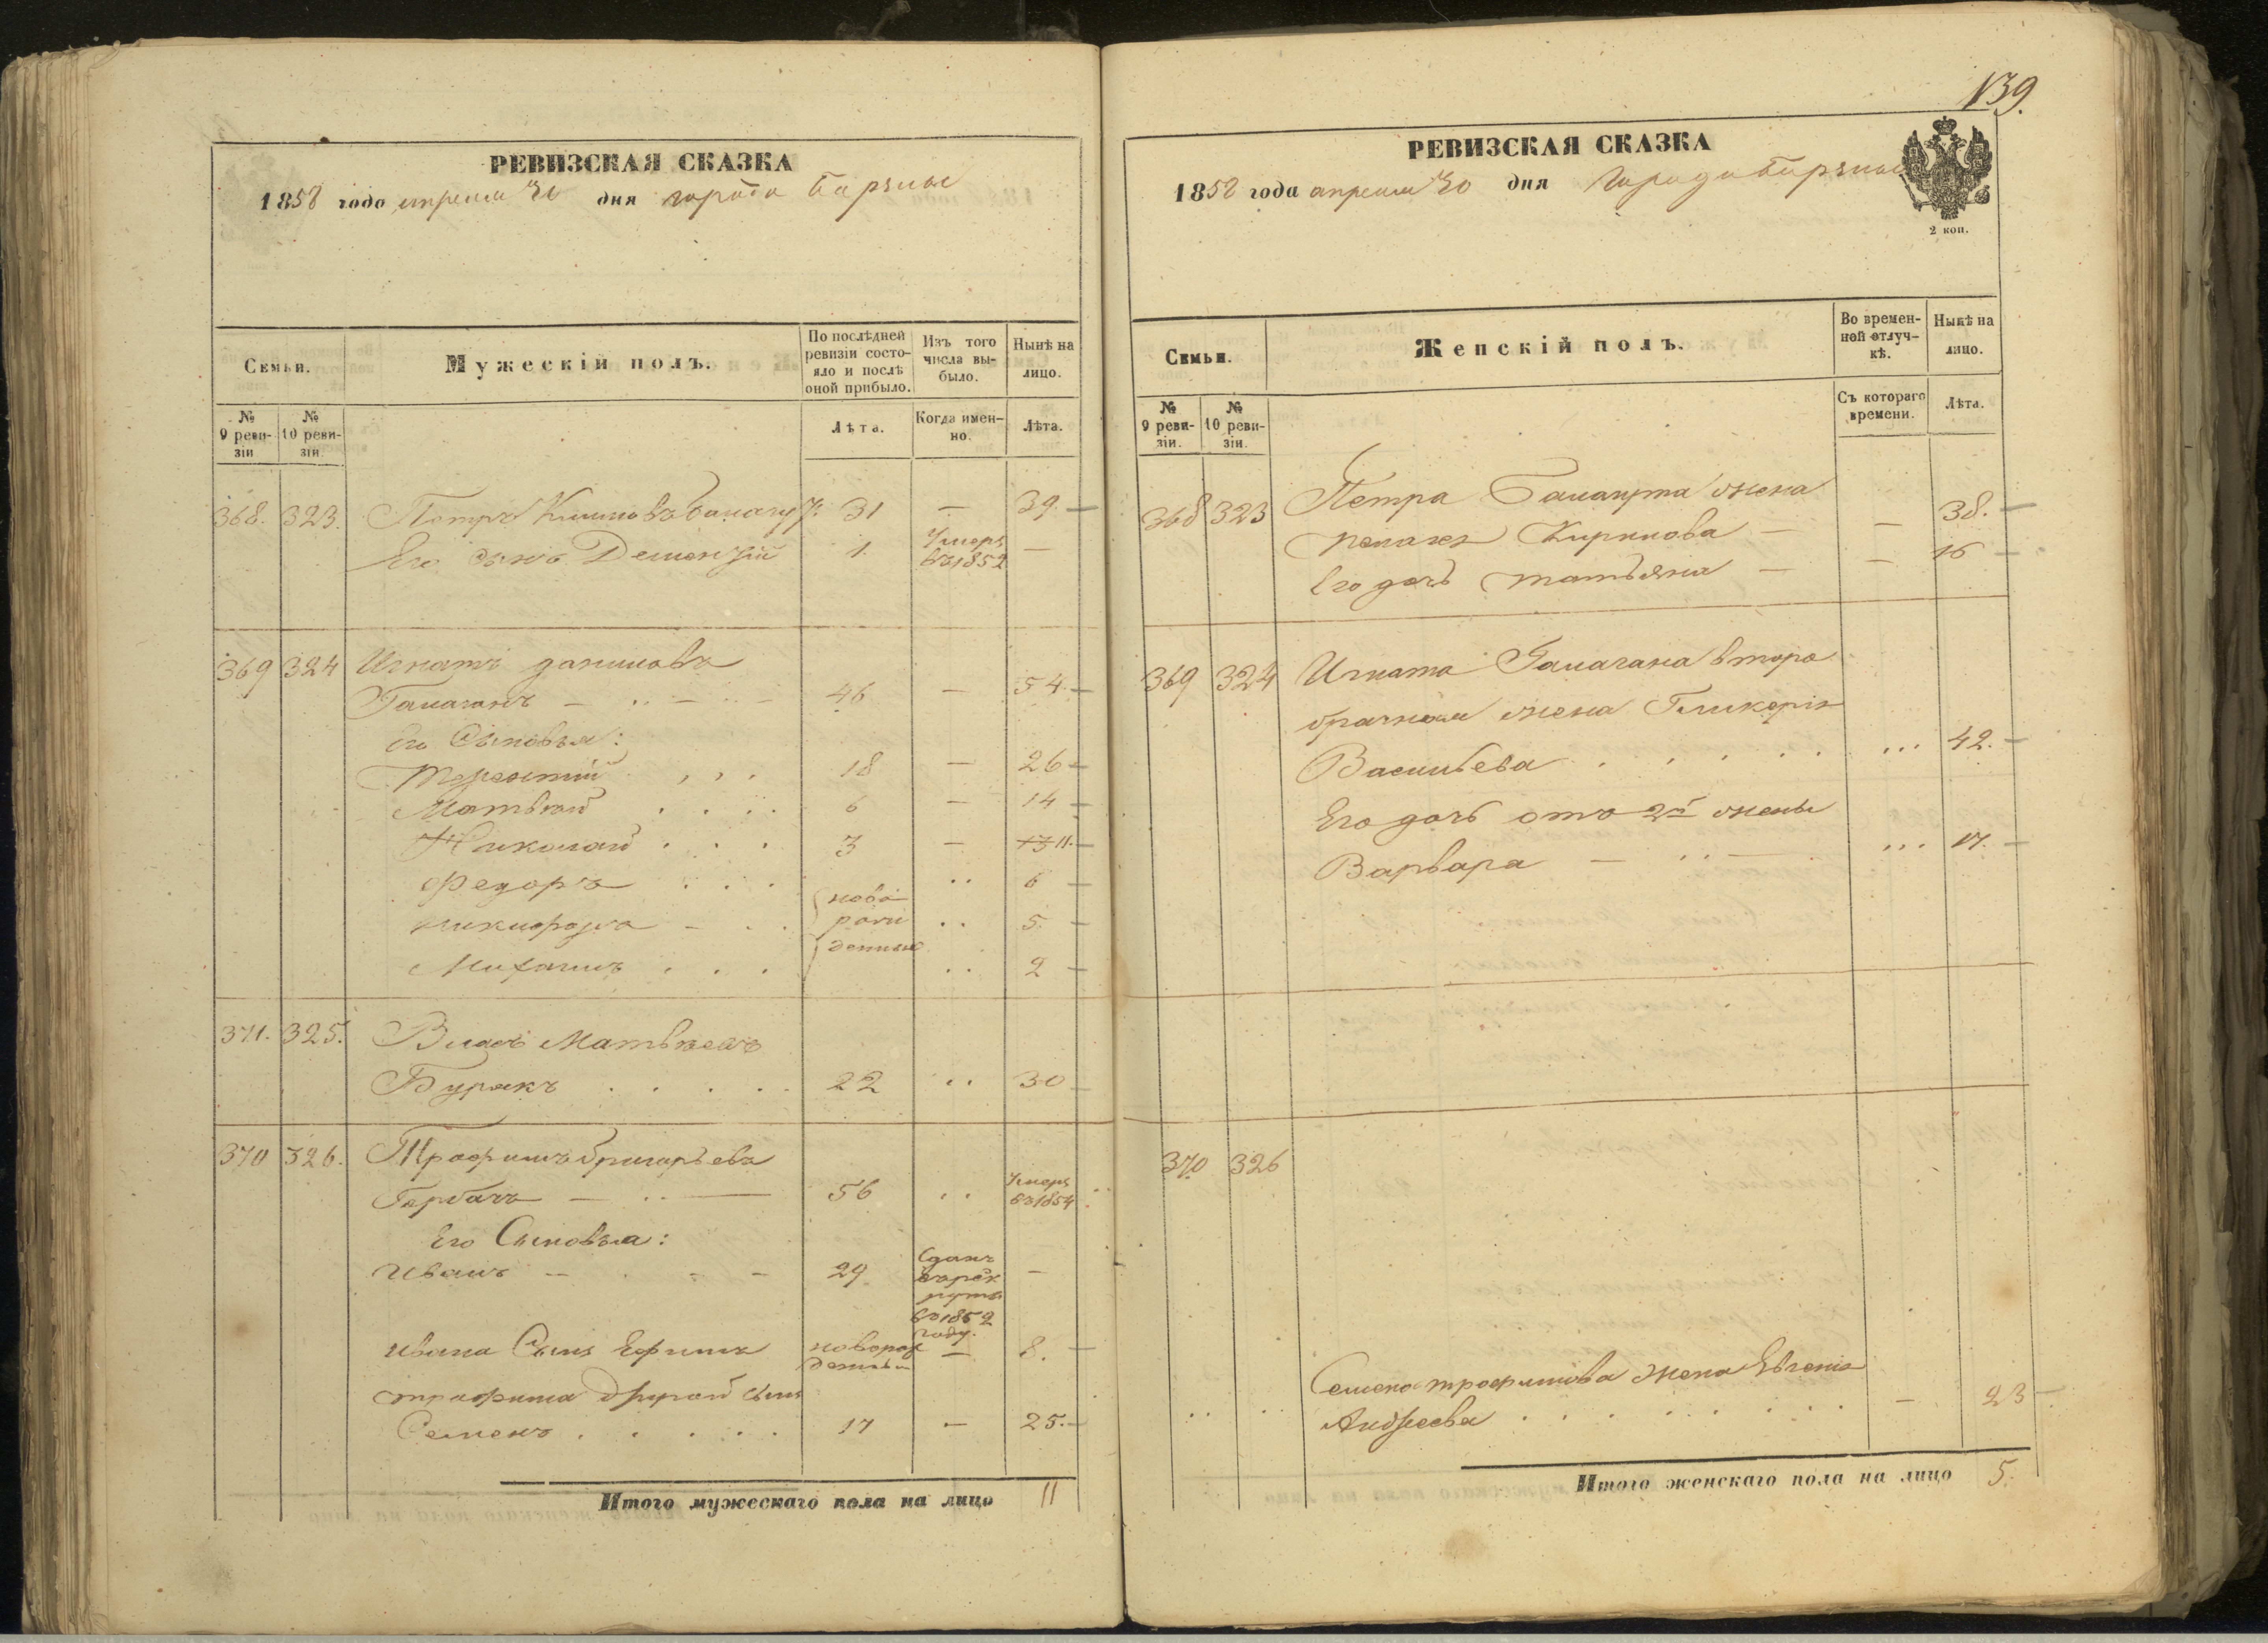 РЕВИЗСКАЯ СКАЗКА
1858 года апреля 30 дня города Борзны
Семьи.
Мужескій полъ.
По послѣдней ревизіи состояло и послѣ оной прибыло.
Изъ того числа выбыло.
Нынѣ на лицо.
№ 9 ревизіи
№ 10 ревизіи.
Лѣта.
Когда именно.
Лѣта.
368. 323. Петръ 31 — 39. —
Его сынъ 1. Умеръ въ 1852 —
369 324 Игнатъ Даниловъ
Галаганъ 46 — 54. —
Его Сыновья:
Терентій 18 — 26 —
Матвѣй 6 — 14 —
Николай 3 — 13 11. —
Федоръ 6 —
новорожденные
Никифоръ 5. —
Михаилъ 2 —
371. 325. Власъ Матвѣевъ
Бурякъ 22 30 —
370 326. Трофимъ Григорьевъ
Горбачъ 56 Умеръ въ 1854
Его Сыновья:
Иванъ 29 Сданъ въ рекруты въ 1852 году. —
Ивана Сынъ Ефимъ новорожденный — 8. —
Трофима другой сынъ
Семенъ 17 — 25. —
Итого мужескаго пола на лицо 11
139.
РЕВИЗСКАЯ СКАЗКА
1858 года апреля 30 дня Города Борзны
2 коп.
Семьи.
Женскій полъ.
Во временной отлучкѣ.
Нынѣ на лицо.
№ 9 ревизіи.
№ 10 ревизіи.
Съ котораго времени.
Лѣта.
368 323 Петра жена
Кирилова — — 38. —
Его дочь Татьяна — — 16 —
369 324 Игната Галагана второ
брачная жена Гликерія
Васильева 42. —
Его дочь отъ 2й жены
Варвара 17. —
370 326
Семена Трофимова жена Евгенія
Андреева — 23 —
Итого женскаго пола на лицо 5.